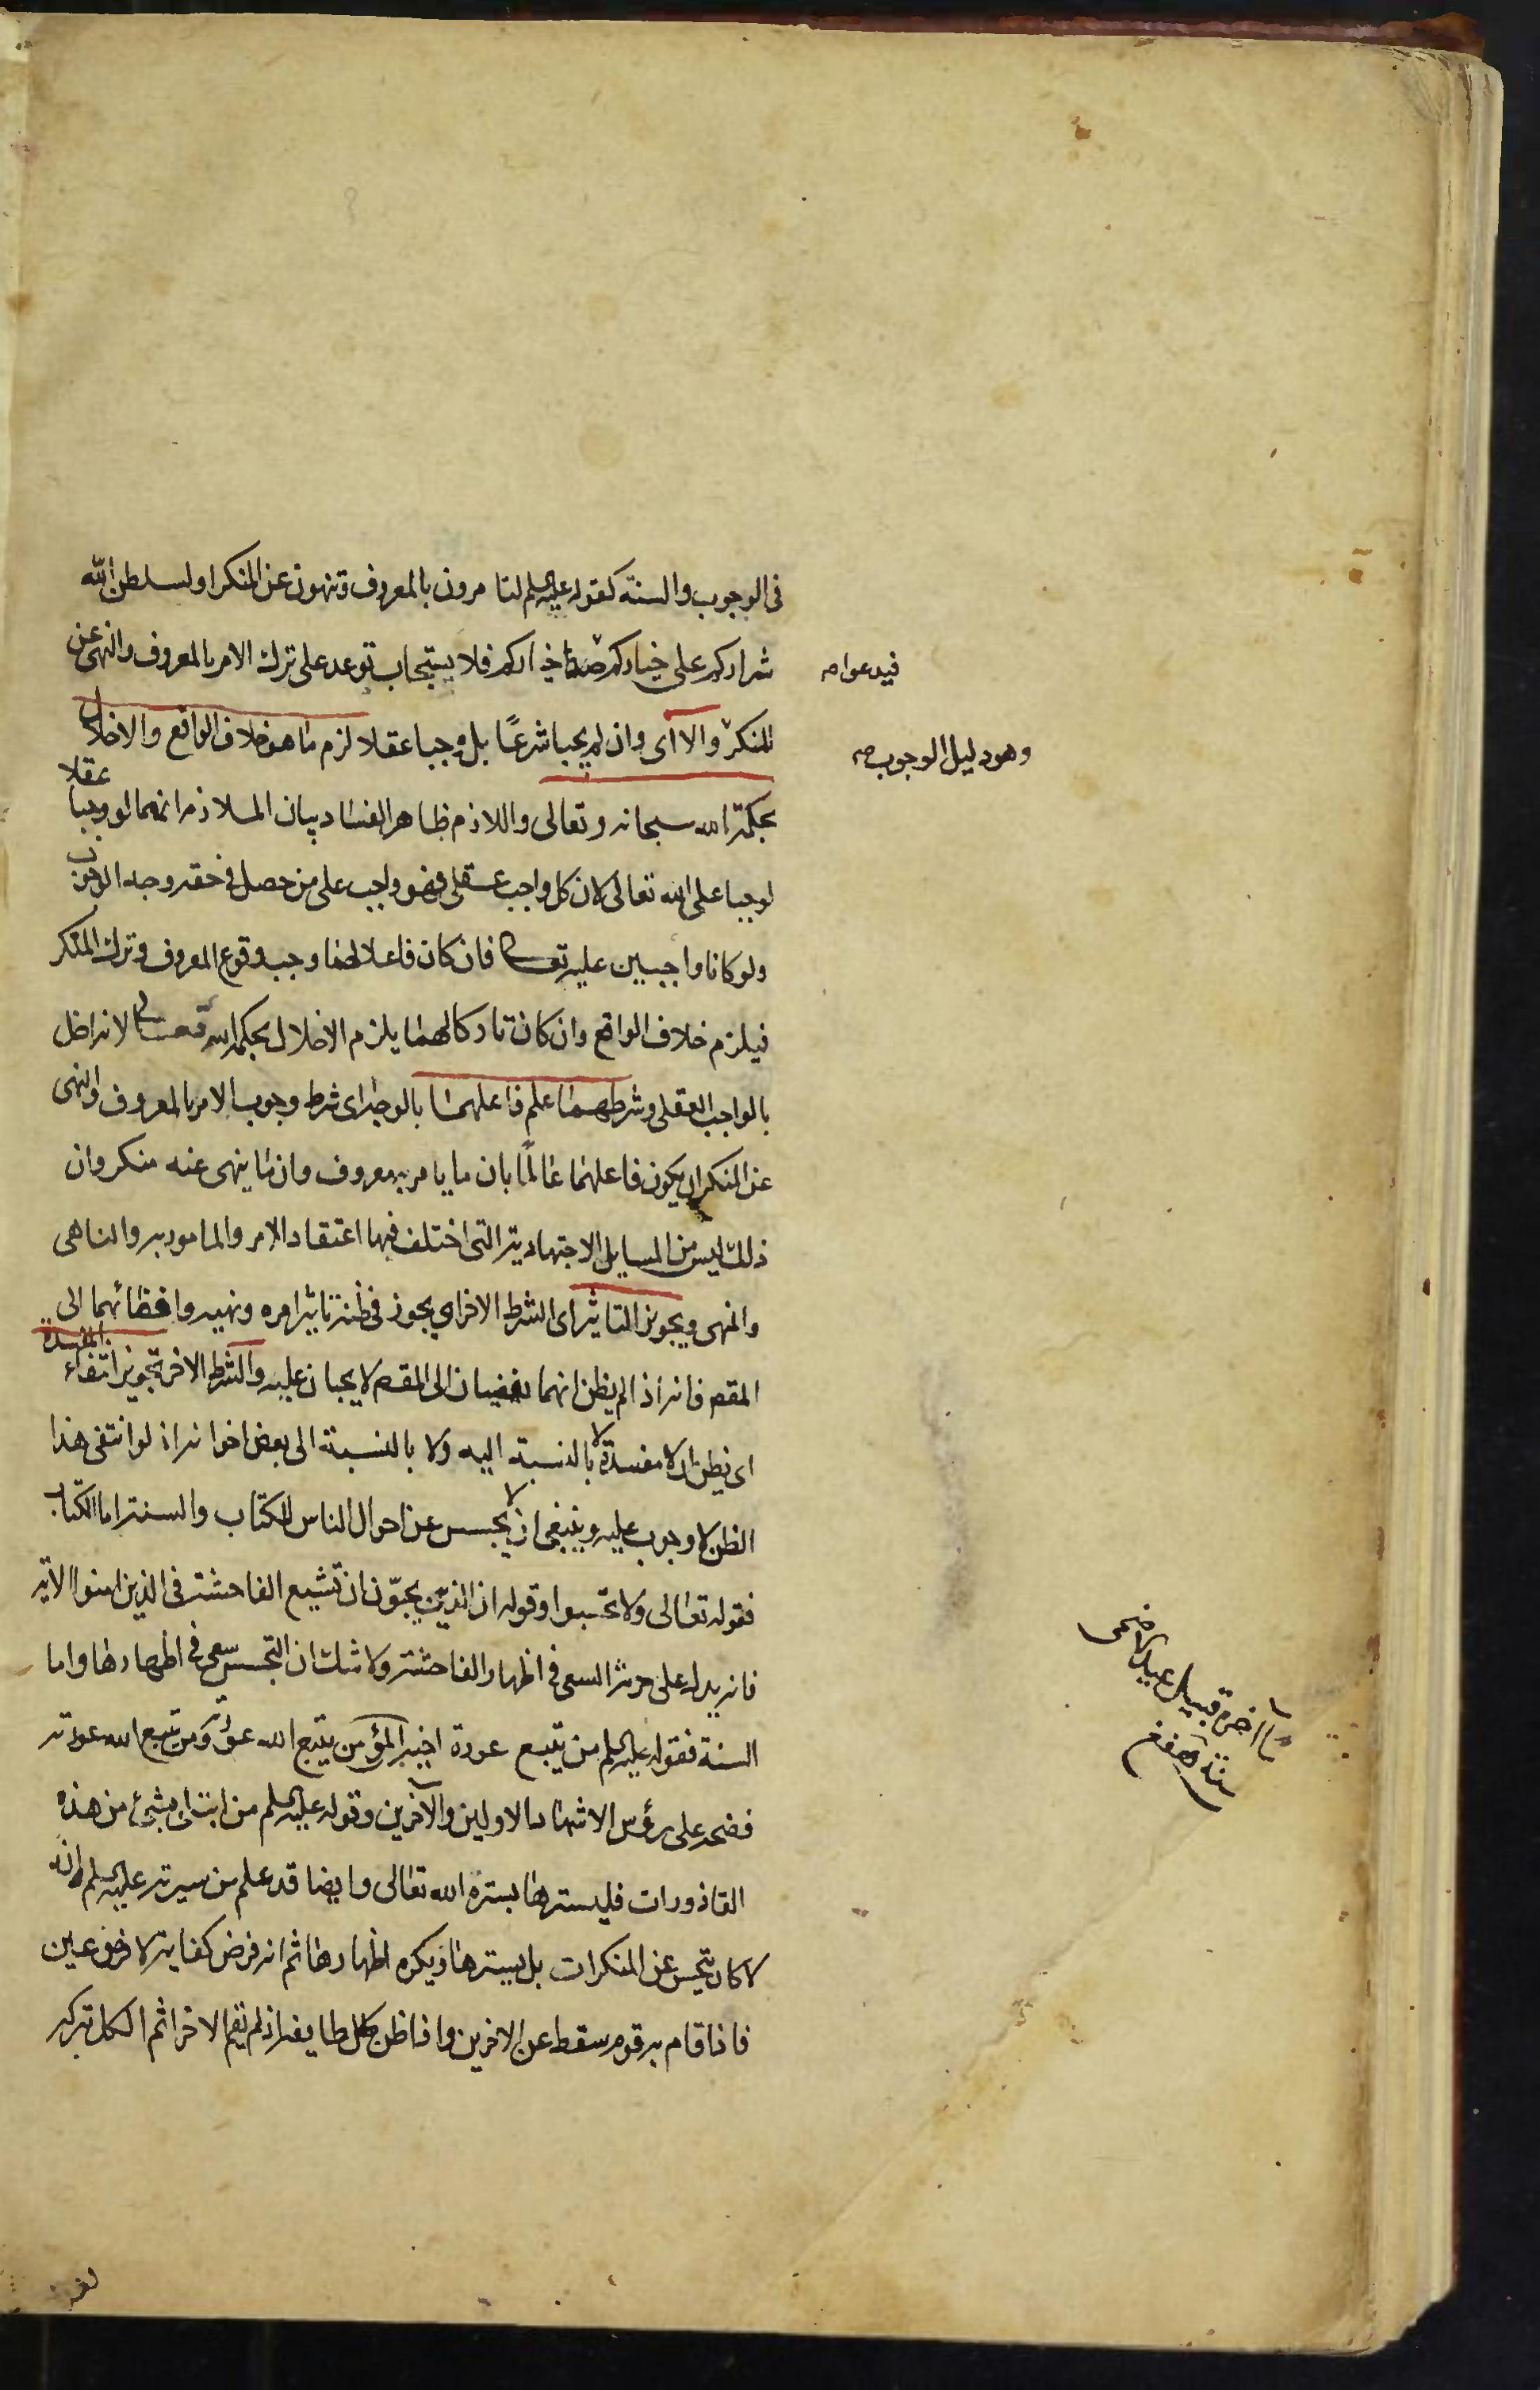 فى الوجوب والسنة كقوله عليه السلم لتامرون بالمعروف وتنهون عن المنكر او ليسلطن الله
شراركم على خياركم خياركم فلا يستجاب توعد على ترك الامر بالمعروف والنهى عن
فيدعوا صح
المنكر والا اى وان لم يجبا شرعًا بل وجبا عقلا لزم ما هو خلاف الواقع والاخلال
وهو دليل الوجوب صح
بحكمة الله سبحانه وتعالى واللازم ظاهر الفساد بيان الملازمة انهما لو وجبا عقلا
لوجبا على الله تعالى لان كل واجب عقلى فهو واجب على من حصل فى حقه وجه الوجوب
ولو كانا واجبين عليه تعالى فان كان فاعلا لهما وجب وقوع المعروف وترك المنكر
فيلزم خلاف الواقع وان كان تاركا لهما يلزم الاخلال بحكمة الله تعالى لانه اخل
بالواجب العقلى وشرطهما علم فاعلهما بالوجه اى شرط وجوب الامر بالمعروف والنهى
عن المنكر ان يكون فاعلهما عالمًا بان ما يامر به معروف وان ما ينهى عنه منكر وان
ذلك ليس من المسايل الاجتهادية التى اختلف فيها اعتقاد الامر والمامور به والناهى
والنهى وتجويز التاثير اى الشرط الاخر ان يجوز فى ظنه تاثير امره ونهيه وافضائهما الى
المقصد فانه اذا لم يظن انهما يفضيان الى المقصد لا يجبان عليه والشرط الاخر تجويز انتفاء المفسدة
اى يظن ان لا مفسدة لا بالنسبة اليه ولا بالنسبة الى بعض اخوانه اذ لو انتفى هذا
الظن لا وجوب عليه وينبغى ان لا يجسس عن احوال الناس للكتاب والسنة اما الكتاب
فقوله تعالى ولا تجسسوا وقوله ان الذين يحبّون ان تشيع الفاحشة فى الذين امنوا الاية
فانه يدل على حرمة السعى فى اظهار الفاحشة ولا شك ان التجسس سعى فى اظهارها واما
السنة فقوله عليه السلم من يتبع عورة اخيه المؤمن يتبع الله عورته ومن تتبع الله عورته
فضحه على رؤس الاشهاد الاولين والآخرين وقوله عليه السلم من ابتلى بشئ من هذه
القاذورات فليسترها بستره الله تعالى وايضا قد علم من سيرته عليه السلم انه
لا كان يتجسس عن المنكرات بل يسترها ويكره اظهارها ثم انه فرض كفاية لا فرض عين
فاذا قام به قوم سقط عن الاخرين واذا ظن كل طايفة انه لم يقم الاخر اثم الكل بتركه
اخره قبيل عيد الاضحى